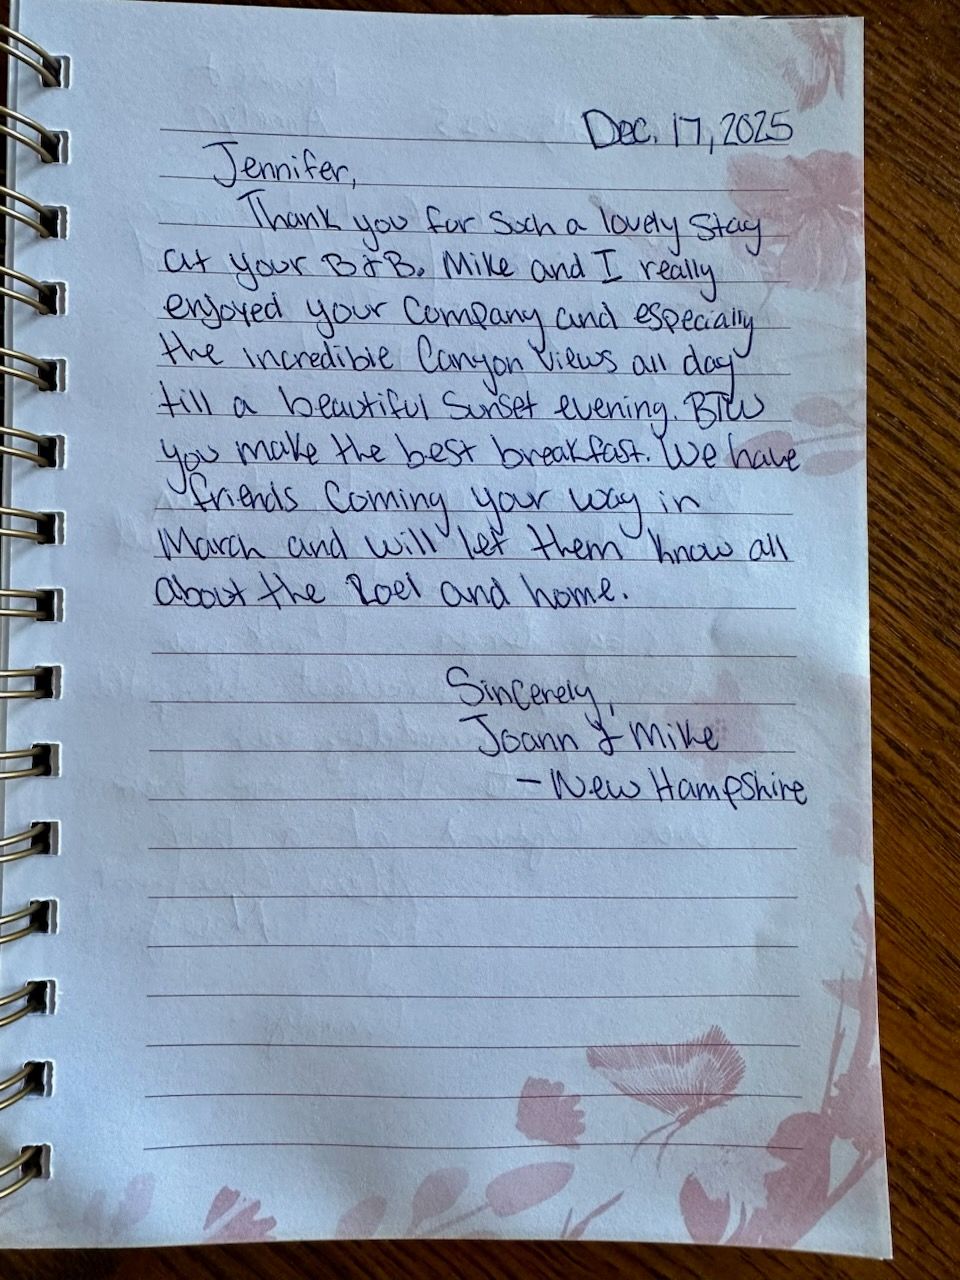 Dec. 17, 2025
Jennifer,
Thank you for such a lovely stay
at your B&B. Mike and I really
enjoyed your company and especially
the incredible Canyon views all day
till a beautiful sunset evening. BTW
you make the best breakfast. We have
friends coming your way in
March and will let them know all
about the and home.
Sincerely,
Joann & Mike
- New Hampshire